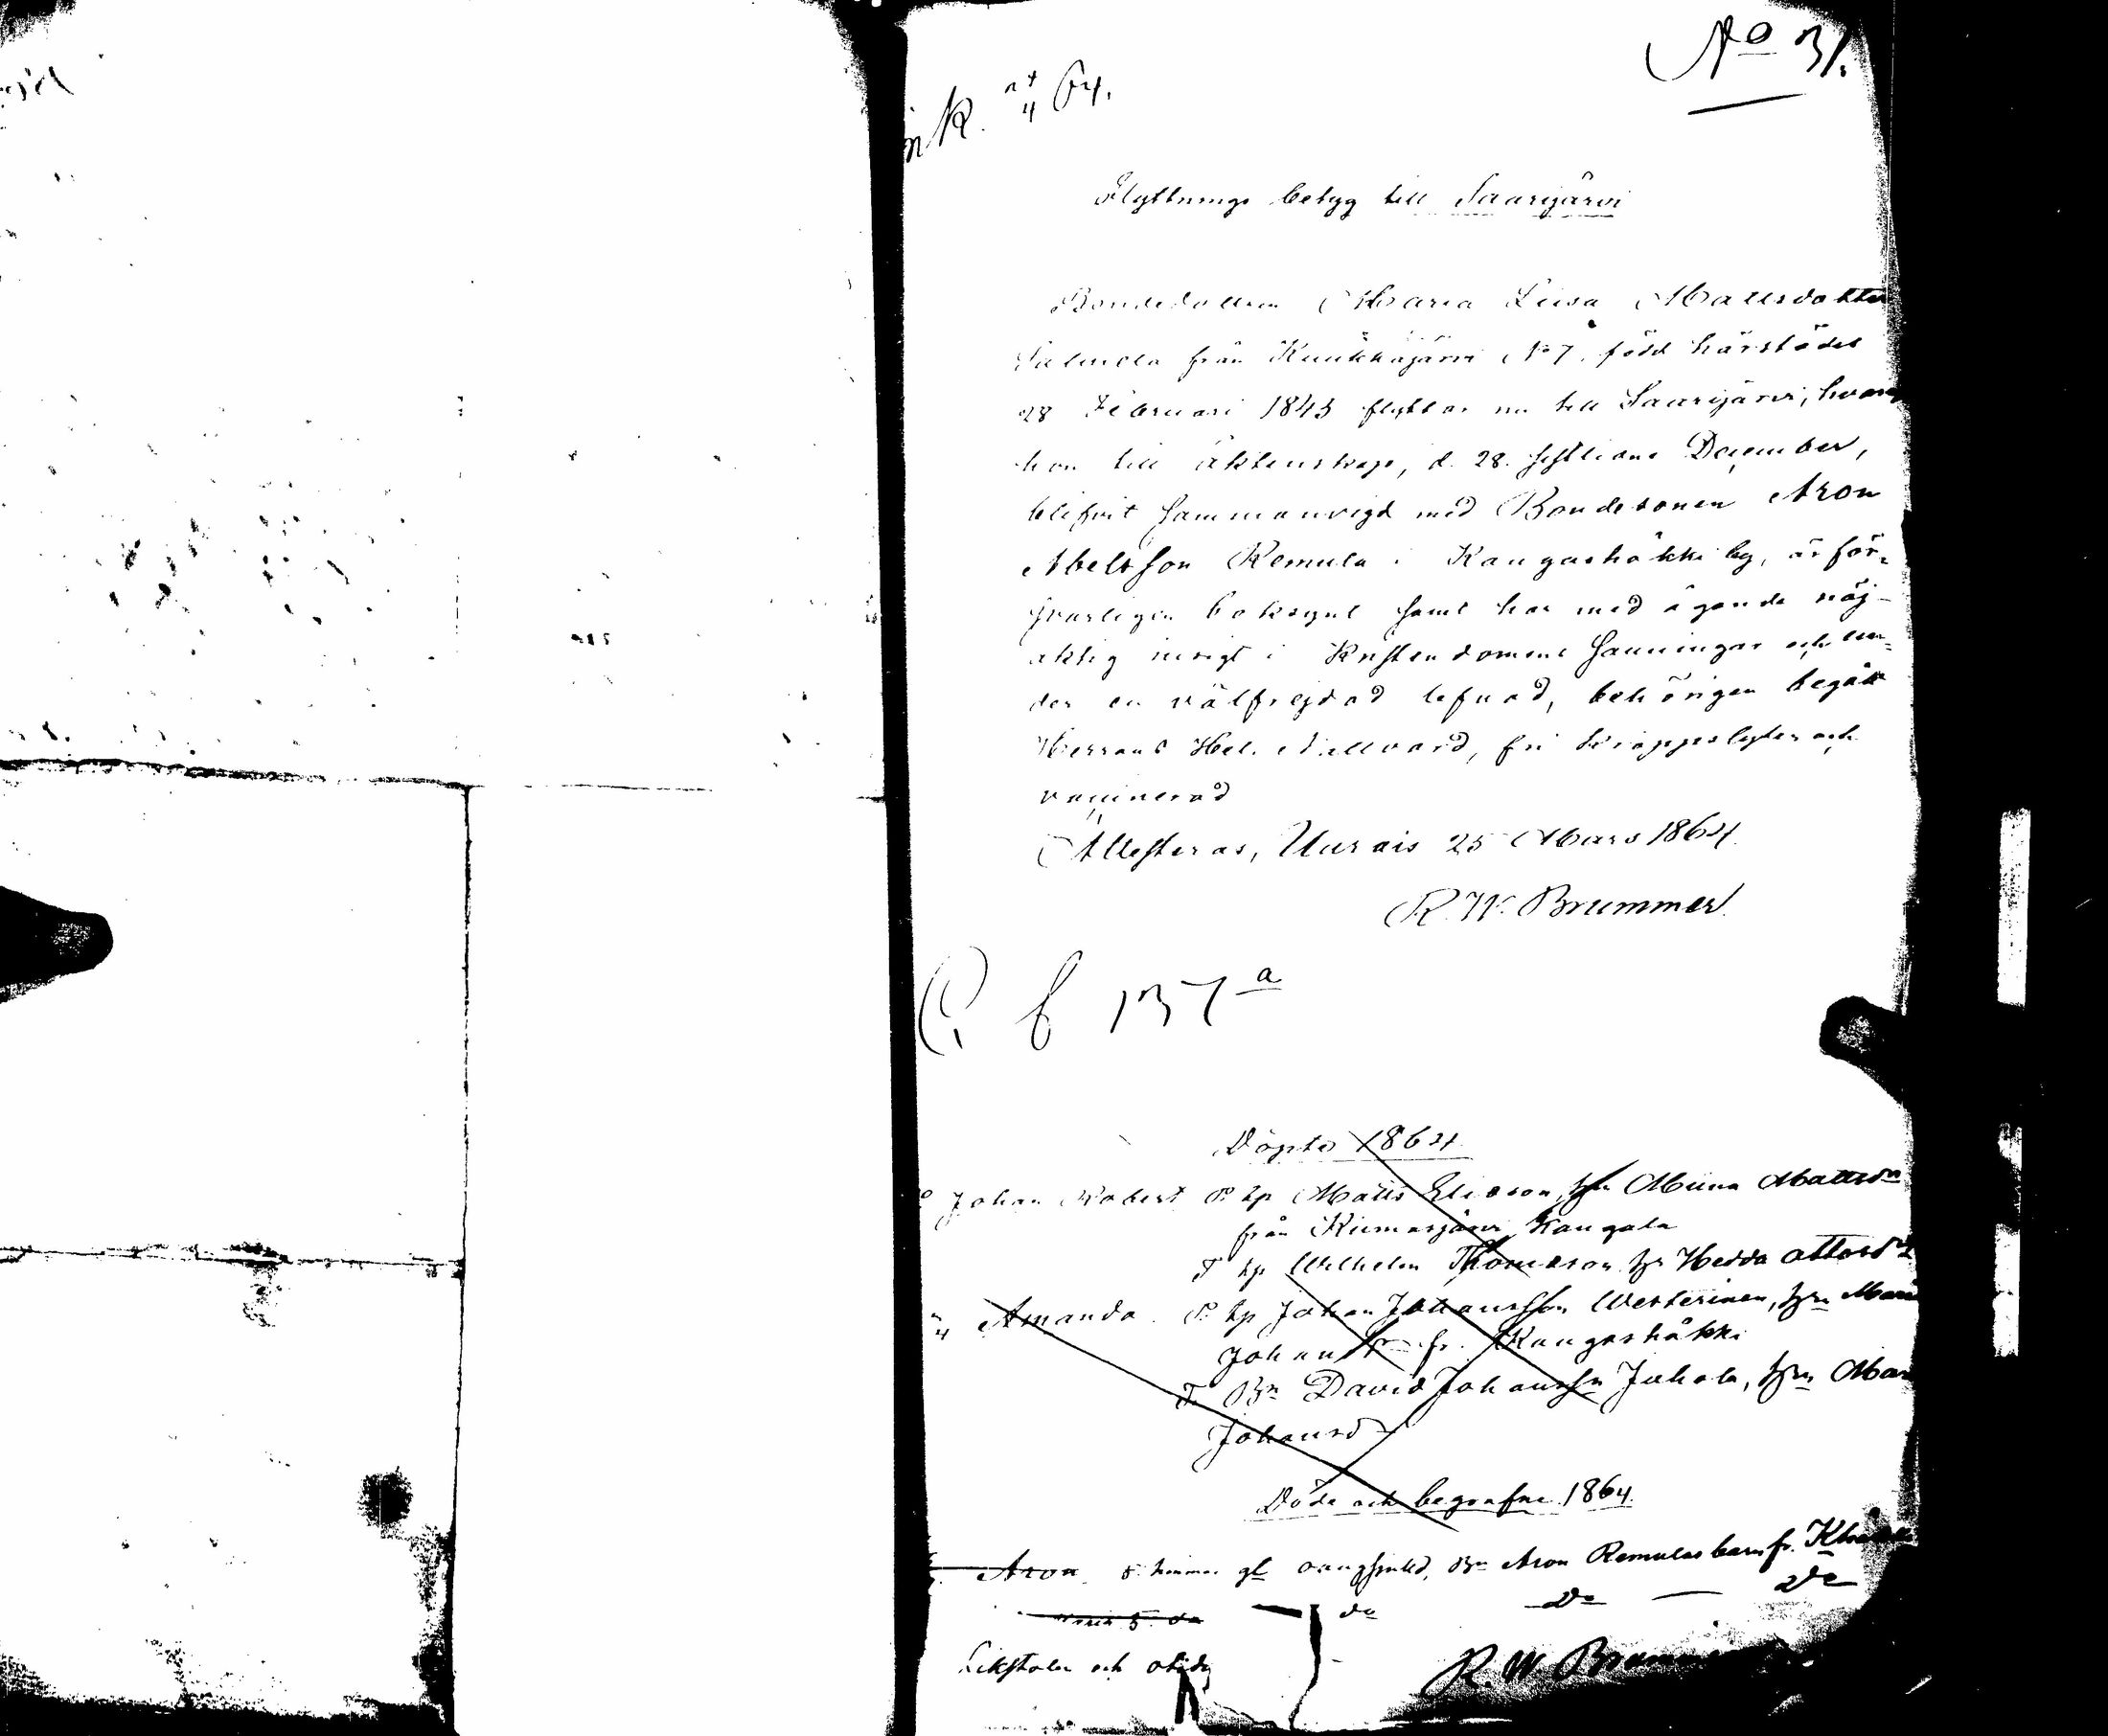 No 31.
ink. 4 64.
Flyttnings betyg till Saarijärvi
Bondedottren Maria Lisa Mattsdotter
från Kuukkajärvi No 7, född härstädes
28 Februari 1843 flyttar nu till Saarijärvi, hvarest
hon till äktenskap, d. 28. sistlidne December,
blifvit sammanvigd med Bondesonen Aron
Abelsson Remula i Kangashäkki by, är för-
svarligen bokkynt samt har med ägande nöj-
aktig insigt i Kristendomens sanningar och un-
der en välfrejdad lefnad, behörigen begått
Herrans Hel. Nattvard, fri kroppslyten och
vaccinerad
Attesteras, Uurais 25 Mars 1864.
R. W. Brummer.
C. f 137 a
Döpte 1864
Johan Robert P. hp Matts Eliasson, hu Miina Mattsdr
från Kiimasjärvi Kangala
T hp Wilhelm Thomasson hu Hedda Ottosdr
Amanda P. hp Johan Johansson Westerinen, hun Maria
Johansdr fr. Kangashäkki
T. Bn David Johanssn Juhola, hun Mar
Johansd
Döde och begrafne 1864.
Aron 5 timmar gl oangifvet, Bn Aron Remulas barn fr.
5 do do do do
Likstolen och
R. W. Brummer